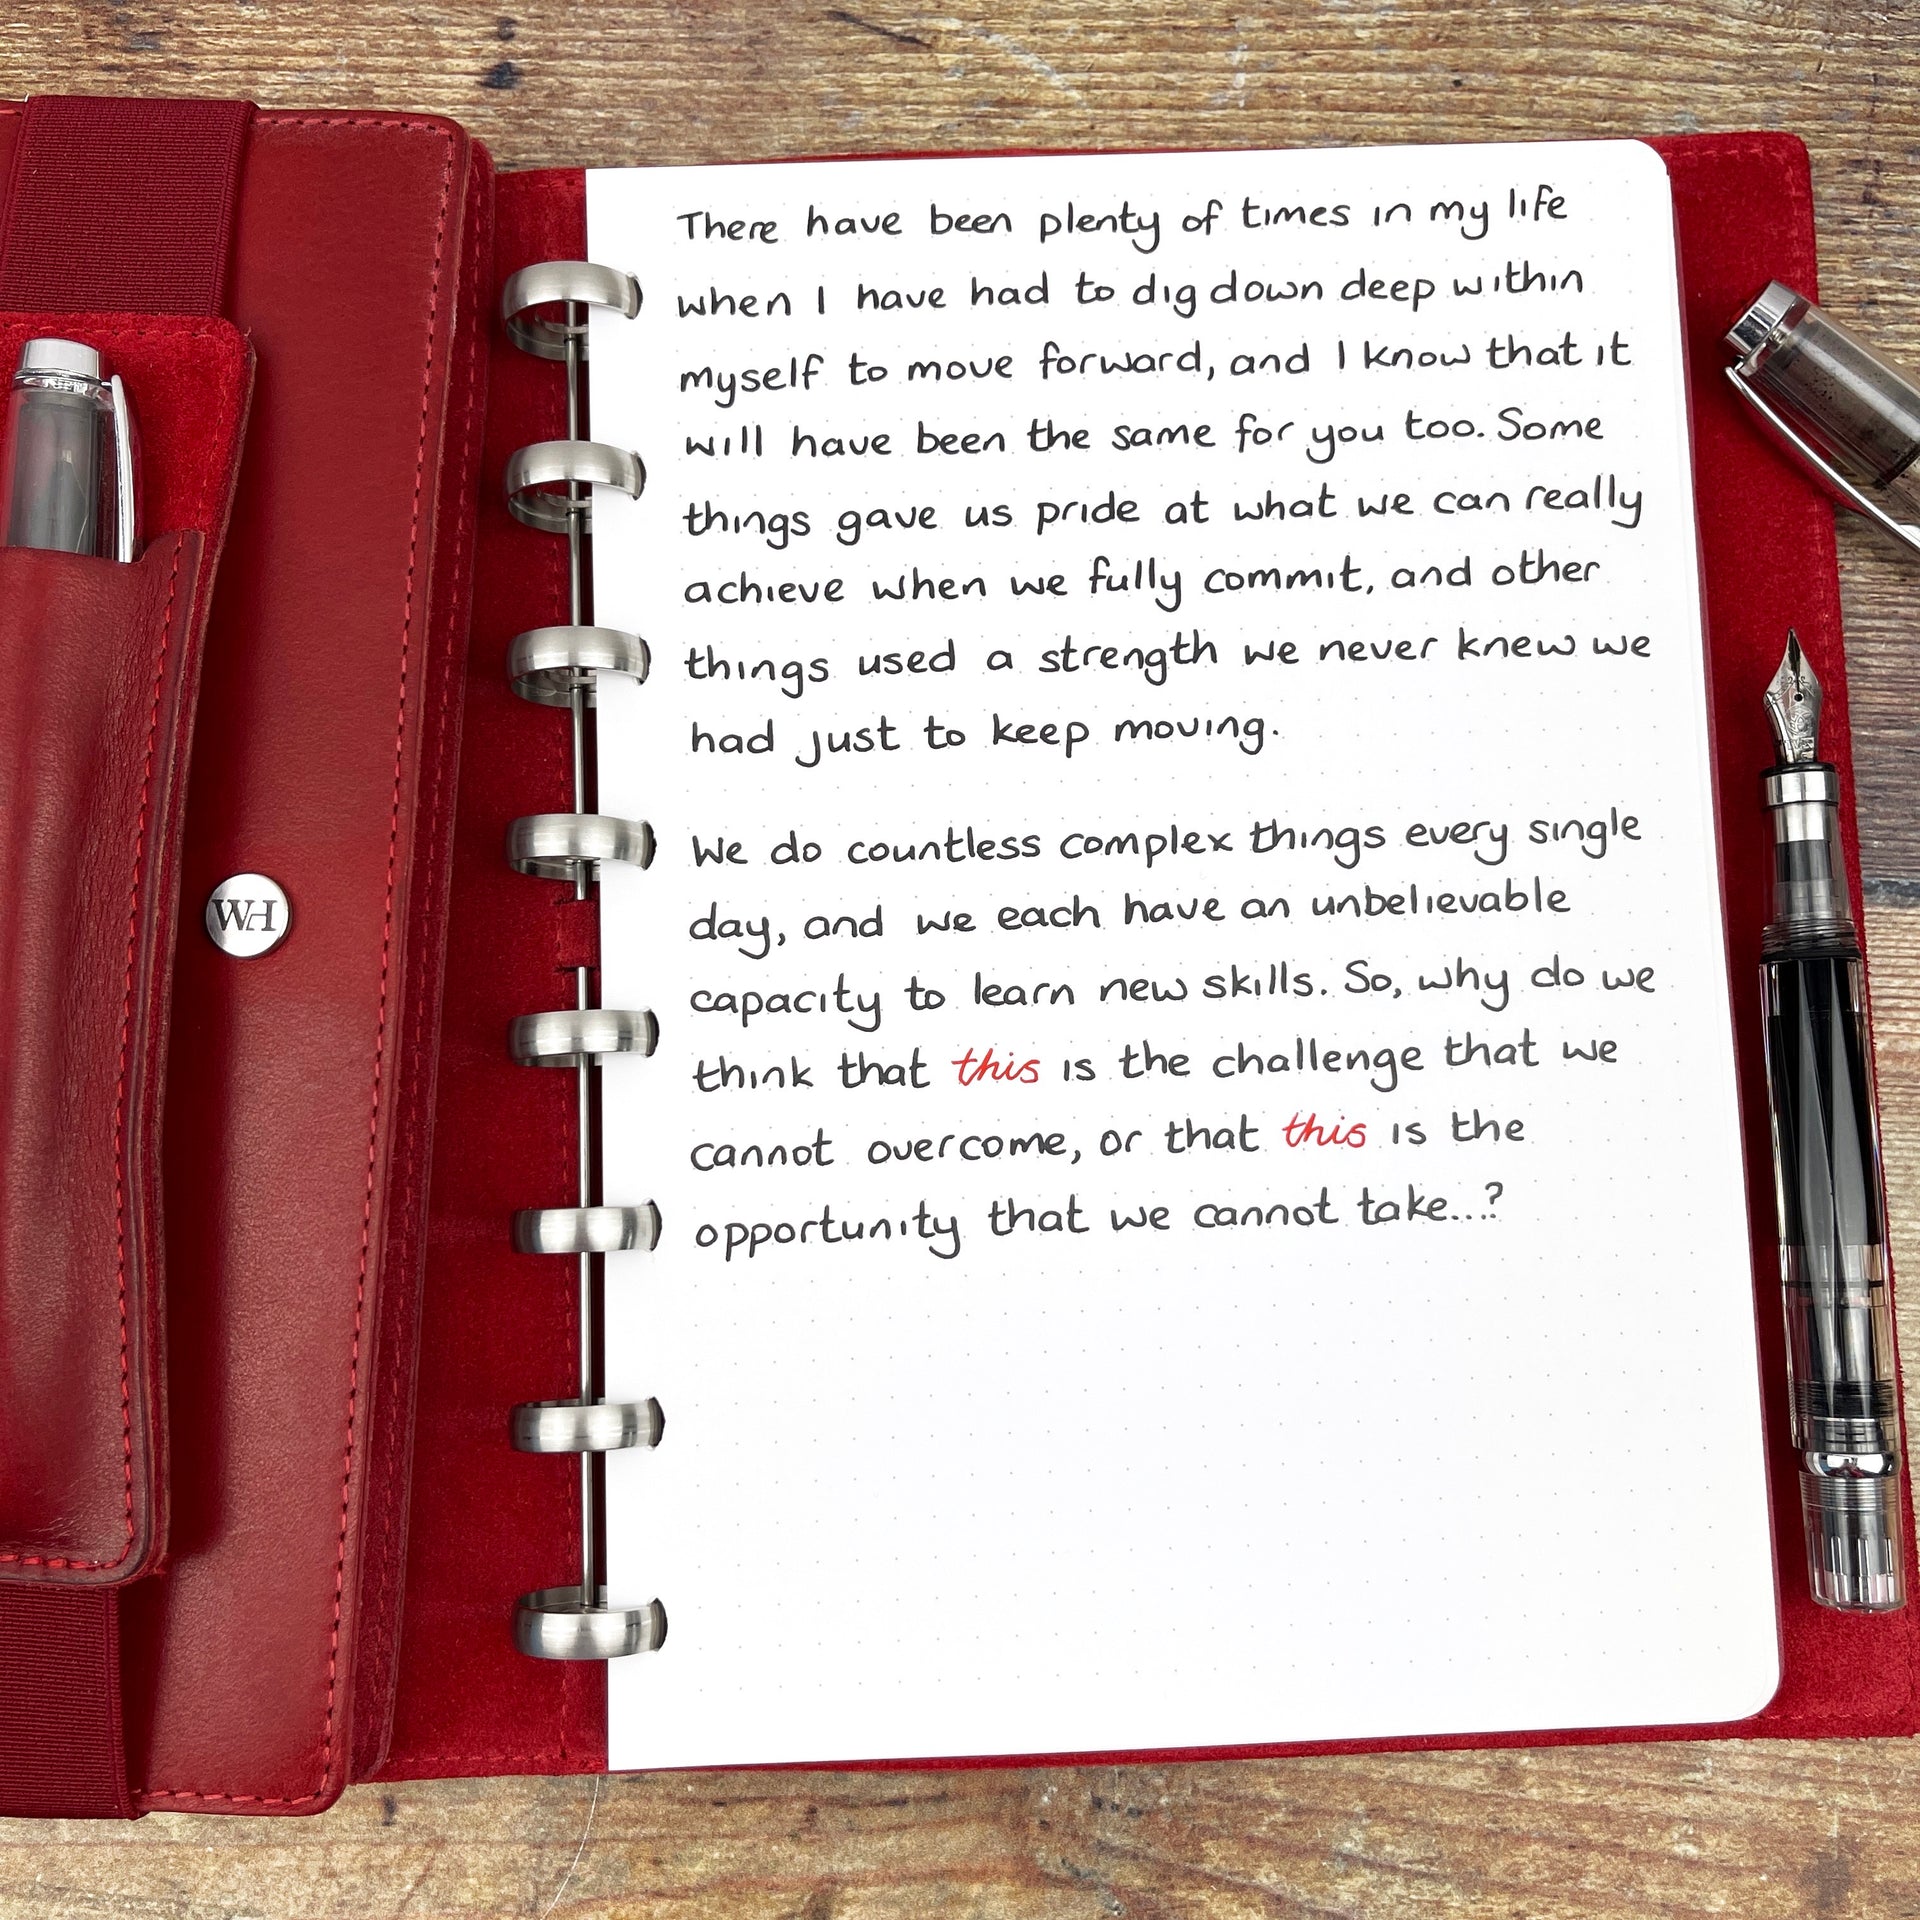 There have been plenty of times in my life
when I have had to dig down deep within
myself to move forward, and I know that it
will have been the same for you too. Some
things gave us pride at what we can really
achieve when we fully commit, and other
things used a strength we never knew we
had just to keep moving.
We do countless complex things every single
day, and we each have an unbelievable
capacity to learn new skills. So, why do we
think that this is the challenge that we
cannot overcome, or that this is the
opportunity that we cannot take...?
WH